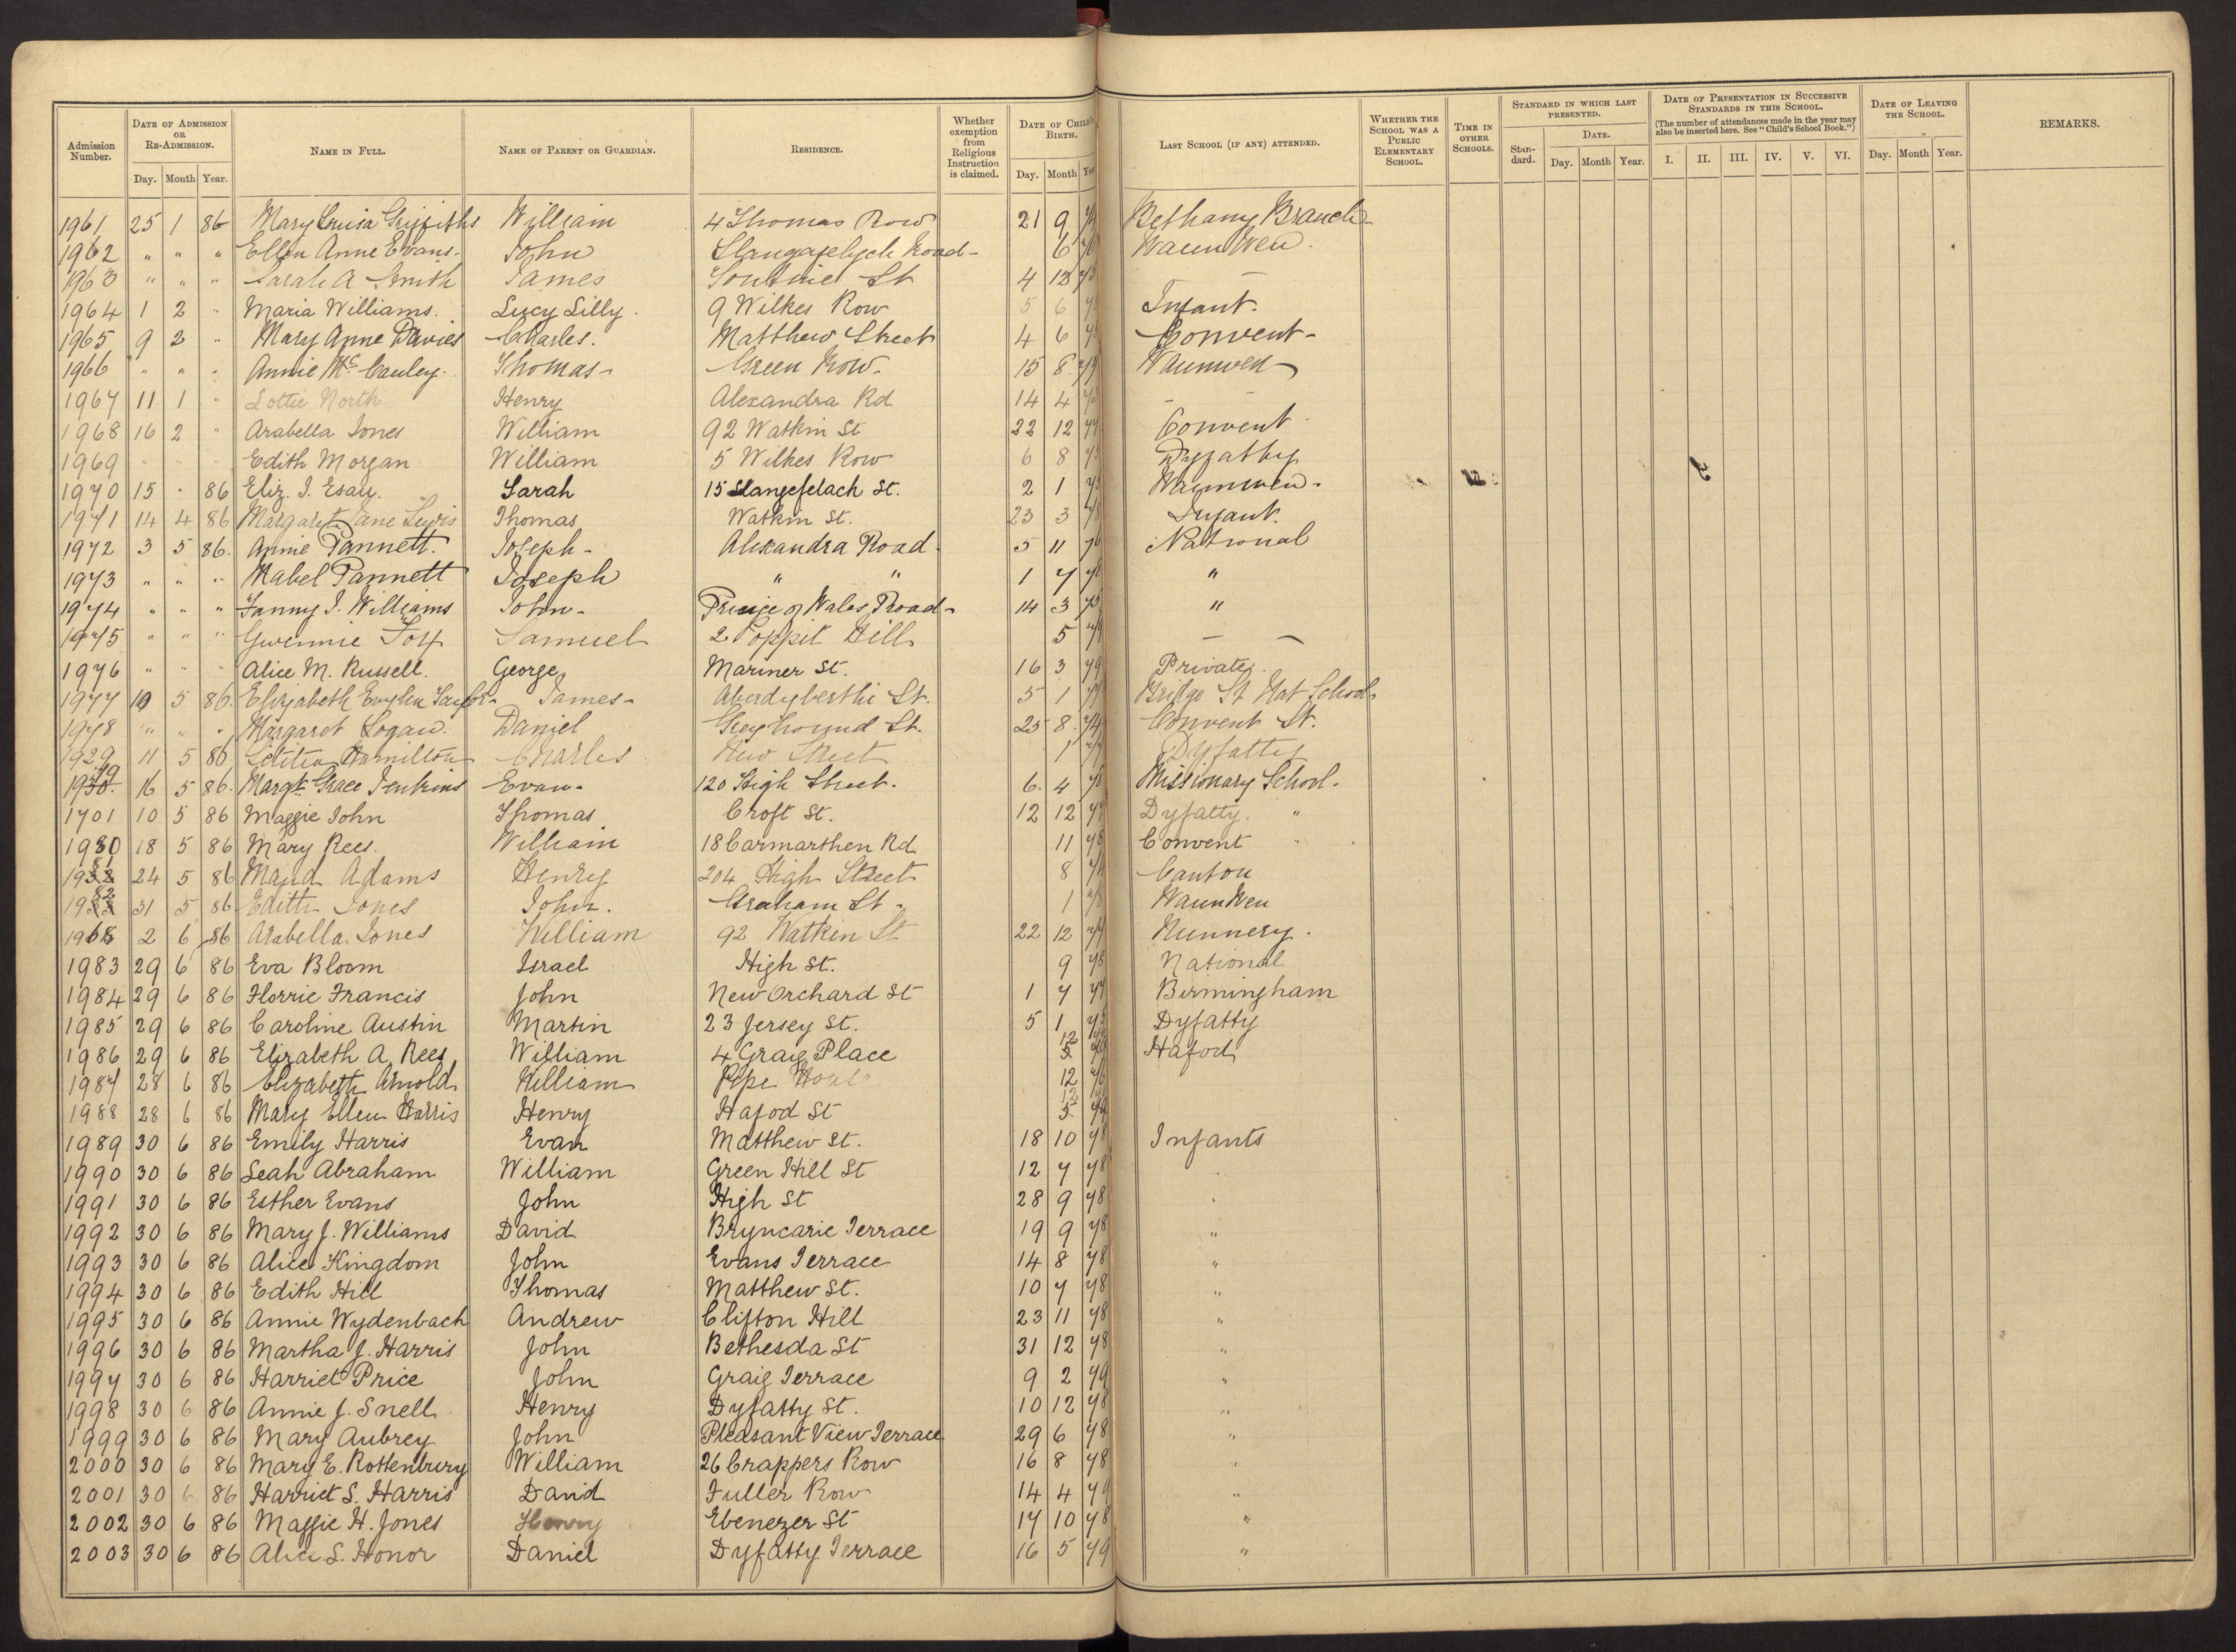 Admission Number. DATE OF ADMISSION OR RE-ADMISSION. Day. Month Year. NAME IN FULL. NAME OF PARENT OR GUARDIAN. RESIDENCE. Whether exemption from Religious Instruction is claimed. DATE OF CHILD'S BIRTH. Day. Month Year LAST SCHOOL (IF ANY) ATTENDED. WHETHER THE SCHOOL WAS A PUBLIC ELEMENTARY SCHOOL. TIME IN OTHER SCHOOLS. STANDARD IN WHICH LAST PRESENTED. Stan-dard. DATE. Day. Month Year. DATE OF PRESENTATION IN SUCCESSIVE STANDARDS IN THIS SCHOOL. (The number of attendances made in the year may also be inserted here. See "Child's School Book.") I. II. III. IV. V. VI. DATE OF LEAVING THE SCHOOL. Day. Month Year. REMARKS.
1961 25 1 86 Mary Louisa Griffiths William 4 Thomas Row 21 9 Bethany Branch
1962 " " " Ellen Anne Evans John Llangafelych Road 6 Waun Wen
1963 " " " Sarah A Smith James St 4 12
1964 1 2 " Maria Williams. Lucy Lilly. 9 Wilkes Row 5 6 Infant.
1965 9 2 " Mary Anne Davies Charles. Matthew Street 4 6 Convent
1966 " " " Annie McCauley. Thomas Green Row 15 8 Waunwen
1967 11 1 " Lottie North. Henry Alexandra Rd 14 4 - -
1968 16 2 " Arabella Jones William 92 Watkin St 22 12 77 Convent
1969 " " " Edith Morgan William 5 Wilkes Row 6 8 Dyfatty
1970 15 " 86 Eliz. J. Esau. Sarah 15 Llangefelach St. 2 1 Waunwen
1971 14 4 86 Margaret Jane Lewis Thomas Watkin St. 23 3 Infant.
1972 3 5 86. Annie Pannett. Joseph Alexandra Road 5 11 National
1973 " " " Mabel Pannett Joseph " " 1 7 78 "
1974 " " " Fanny J. Williams John Prince of Wales Road 14 3 "
1975 " " " Gwennie Samuel 2 Poppit Hill 5 - -
1976 " " " Alice M. Russell. George Mariner St. 16 3 79 Private
1977 10 5 86. Elizabeth James Aberdyberthi St. 5 1 Bridge St Nat School
1978 " " " Margaret Logan. Daniel Greyhound St. 25 8 74 Convent St.
1929 11 5 86 Letitia Hamilton Charles New Street 1 Dyfatty
1930 79 16 5 86. Margt Grace Jenkins Evan 120 High Street. 6 4 78 Missionary School.
1701 10 5 86 Maggie John Thomas Croft St. 12 12 77 Dyfatty. "
1980 18 5 86 Mary Rees. William 18 Carmarthen Rd 11 78 Convent
1981 24 5 86 Maud Adams Henry 204 High Street 8 Canton
1982 31 5 86 Edith Jones John. Graham St 1 Waun Wen
1968 2 6 86 Arabella Jones William 92 Watkin St 22 12 77 Nunnery.
1983 29 6 86 Eva Bloom Israel High St. 9 78 National
1984 29 6 86 Florrie Francis John New Orchard St 1 7 77 Birmingham
1985 29 6 86 Caroline Austin Martin 23 Jersey St. 5 1 Dyfatty
1986 29 6 86 Elizabeth A. Rees William 4 Graig Place 12 5 Hafod
1987 28 6 86 Elizabeth Arnold William Pipe 12 76
1988 28 6 86 Mary Ellen Harris Henry Hafod St 12 5
1989 30 6 86 Emily Harris Evan Matthew St. 18 10 78 Infants
1990 30 6 86 Leah Abraham William Green Hill St 12 7 78 "
1991 30 6 86 Esther Evans John High St 28 9 78 "
1992 30 6 86 Mary J. Williams David Bryncarie Terrace 19 9 78 "
1993 30 6 86 Alice Kingdom John Evans Terrace 14 8 78 "
1994 30 6 86 Edith Hill Thomas Matthew St. 10 7 78 "
1995 30 6 86 Annie Wydenbach Andrew Clifton Hill 23 11 78 "
1996 30 6 86 Martha J. Harris John Bethesda St 31 12 78 "
1997 30 6 86 Harriet Price John Graig Terrace 9 2 79 "
1998 30 6 86 Annie J. Snell Henry Dyfatty St. 10 12 78 "
1999 30 6 86 Mary Aubrey John Pleasant View Terrace 29 6 78 "
2000 30 6 86 Mary E. Rottenbury William 26 Crappers Row 16 8 78 "
2001 30 6 86 Harriet S. Harris David Fuller Row 14 4 79 "
2002 30 6 86 Maggie H. Jones Henry Ebenezer St 17 10 78 "
2003 30 6 86 Alice S. Honor Daniel Dyfatty Terrace 16 5 79 "